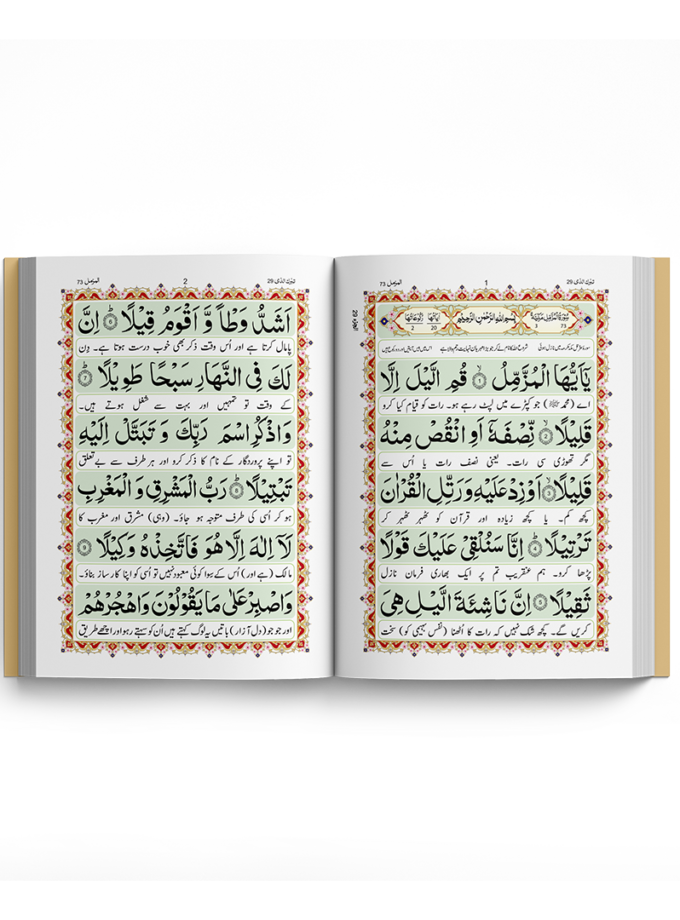 المزمل 73
1
تبٰرك الذی 29
سُوْرَةُ الْمُزَّمِّلِ مَكِّيَّةٌ
بِسْمِ اللهِ الرَّحْمٰنِ الرَّحِيْمِ
اٰيَاتُهَا
رُكُوْعَاتُهَا
73
3
20
2
شروع اللہ کا نام لے کر جو بڑا مہربان نہایت رحم والا ہے
يٰۤاَيُّهَا الْمُزَّمِّلُ ۙ۝۱ قُمِ الَّيْلَ اِلَّا
اے (محمد ﷺ) جو کپڑے میں لپٹ رہے ہو۔ رات کو قیام کیا کرو
قَلِيْلًا ۙ۝۲ نِّصْفَهٗۤ اَوِ انْقُصْ مِنْهُ
مگر تھوڑی سی رات۔ یعنی نصف رات یا اُس سے
قَلِيْلًا ۙ۝۳ اَوْ زِدْ عَلَيْهِ وَرَتِّلِ الْقُرْاٰنَ
کچھ کم۔ یا کچھ زیادہ اور قرآن کو ٹھہر ٹھہر کر
تَرْتِيْلًا ؕ۝۴ اِنَّا سَنُلْقِيْ عَلَيْكَ قَوْلًا
پڑھا کرو۔ ہم عنقریب تم پر ایک بھاری فرمان نازل
ثَقِيْلًا ۝۵ اِنَّ نَاشِئَةَ الَّيْلِ هِيَ
کریں گے۔ کچھ شک نہیں کہ رات کا اُٹھنا (نفس بہیمی کو) سخت
المزمل 73
2
تبٰرك الذی 29
اَشَدُّ وَطْاً وَّ اَقْوَمُ قِيْلًا ؕ۝۶ اِنَّ
پامال کرتا ہے اور اُس وقت ذکر بھی خوب درست ہوتا ہے۔ دن
لَكَ فِي النَّهَارِ سَبْحًا طَوِيْلًا ؕ۝۷
کے وقت تو تمہیں اور بہت سے شغل ہوتے ہیں۔
وَاذْكُرِ اسْمَ رَبِّكَ وَ تَبَتَّلْ اِلَيْهِ
تو اپنے پروردگار کے نام کا ذکر کرو اور ہر طرف سے بے تعلق
تَبْتِيْلًا ؕ۝۸ رَبُّ الْمَشْرِقِ وَ الْمَغْرِبِ
ہو کر اُسی کی طرف متوجہ ہو جاؤ۔ (وہی) مشرق اور مغرب کا
لَاۤ اِلٰهَ اِلَّا هُوَ فَاتَّخِذْهُ وَكِيْلًا ۝۹
مالک (ہے اور) اُس کے سوا کوئی معبود نہیں تو اُسی کو اپنا کارساز بناؤ۔
وَاصْبِرْ عَلٰى مَا يَقُوْلُوْنَ وَاهْجُرْهُمْ
اور جو جو (دل آزار) باتیں یہ لوگ کہتے ہیں اُن کو سہتے رہو اور اچھے طریق